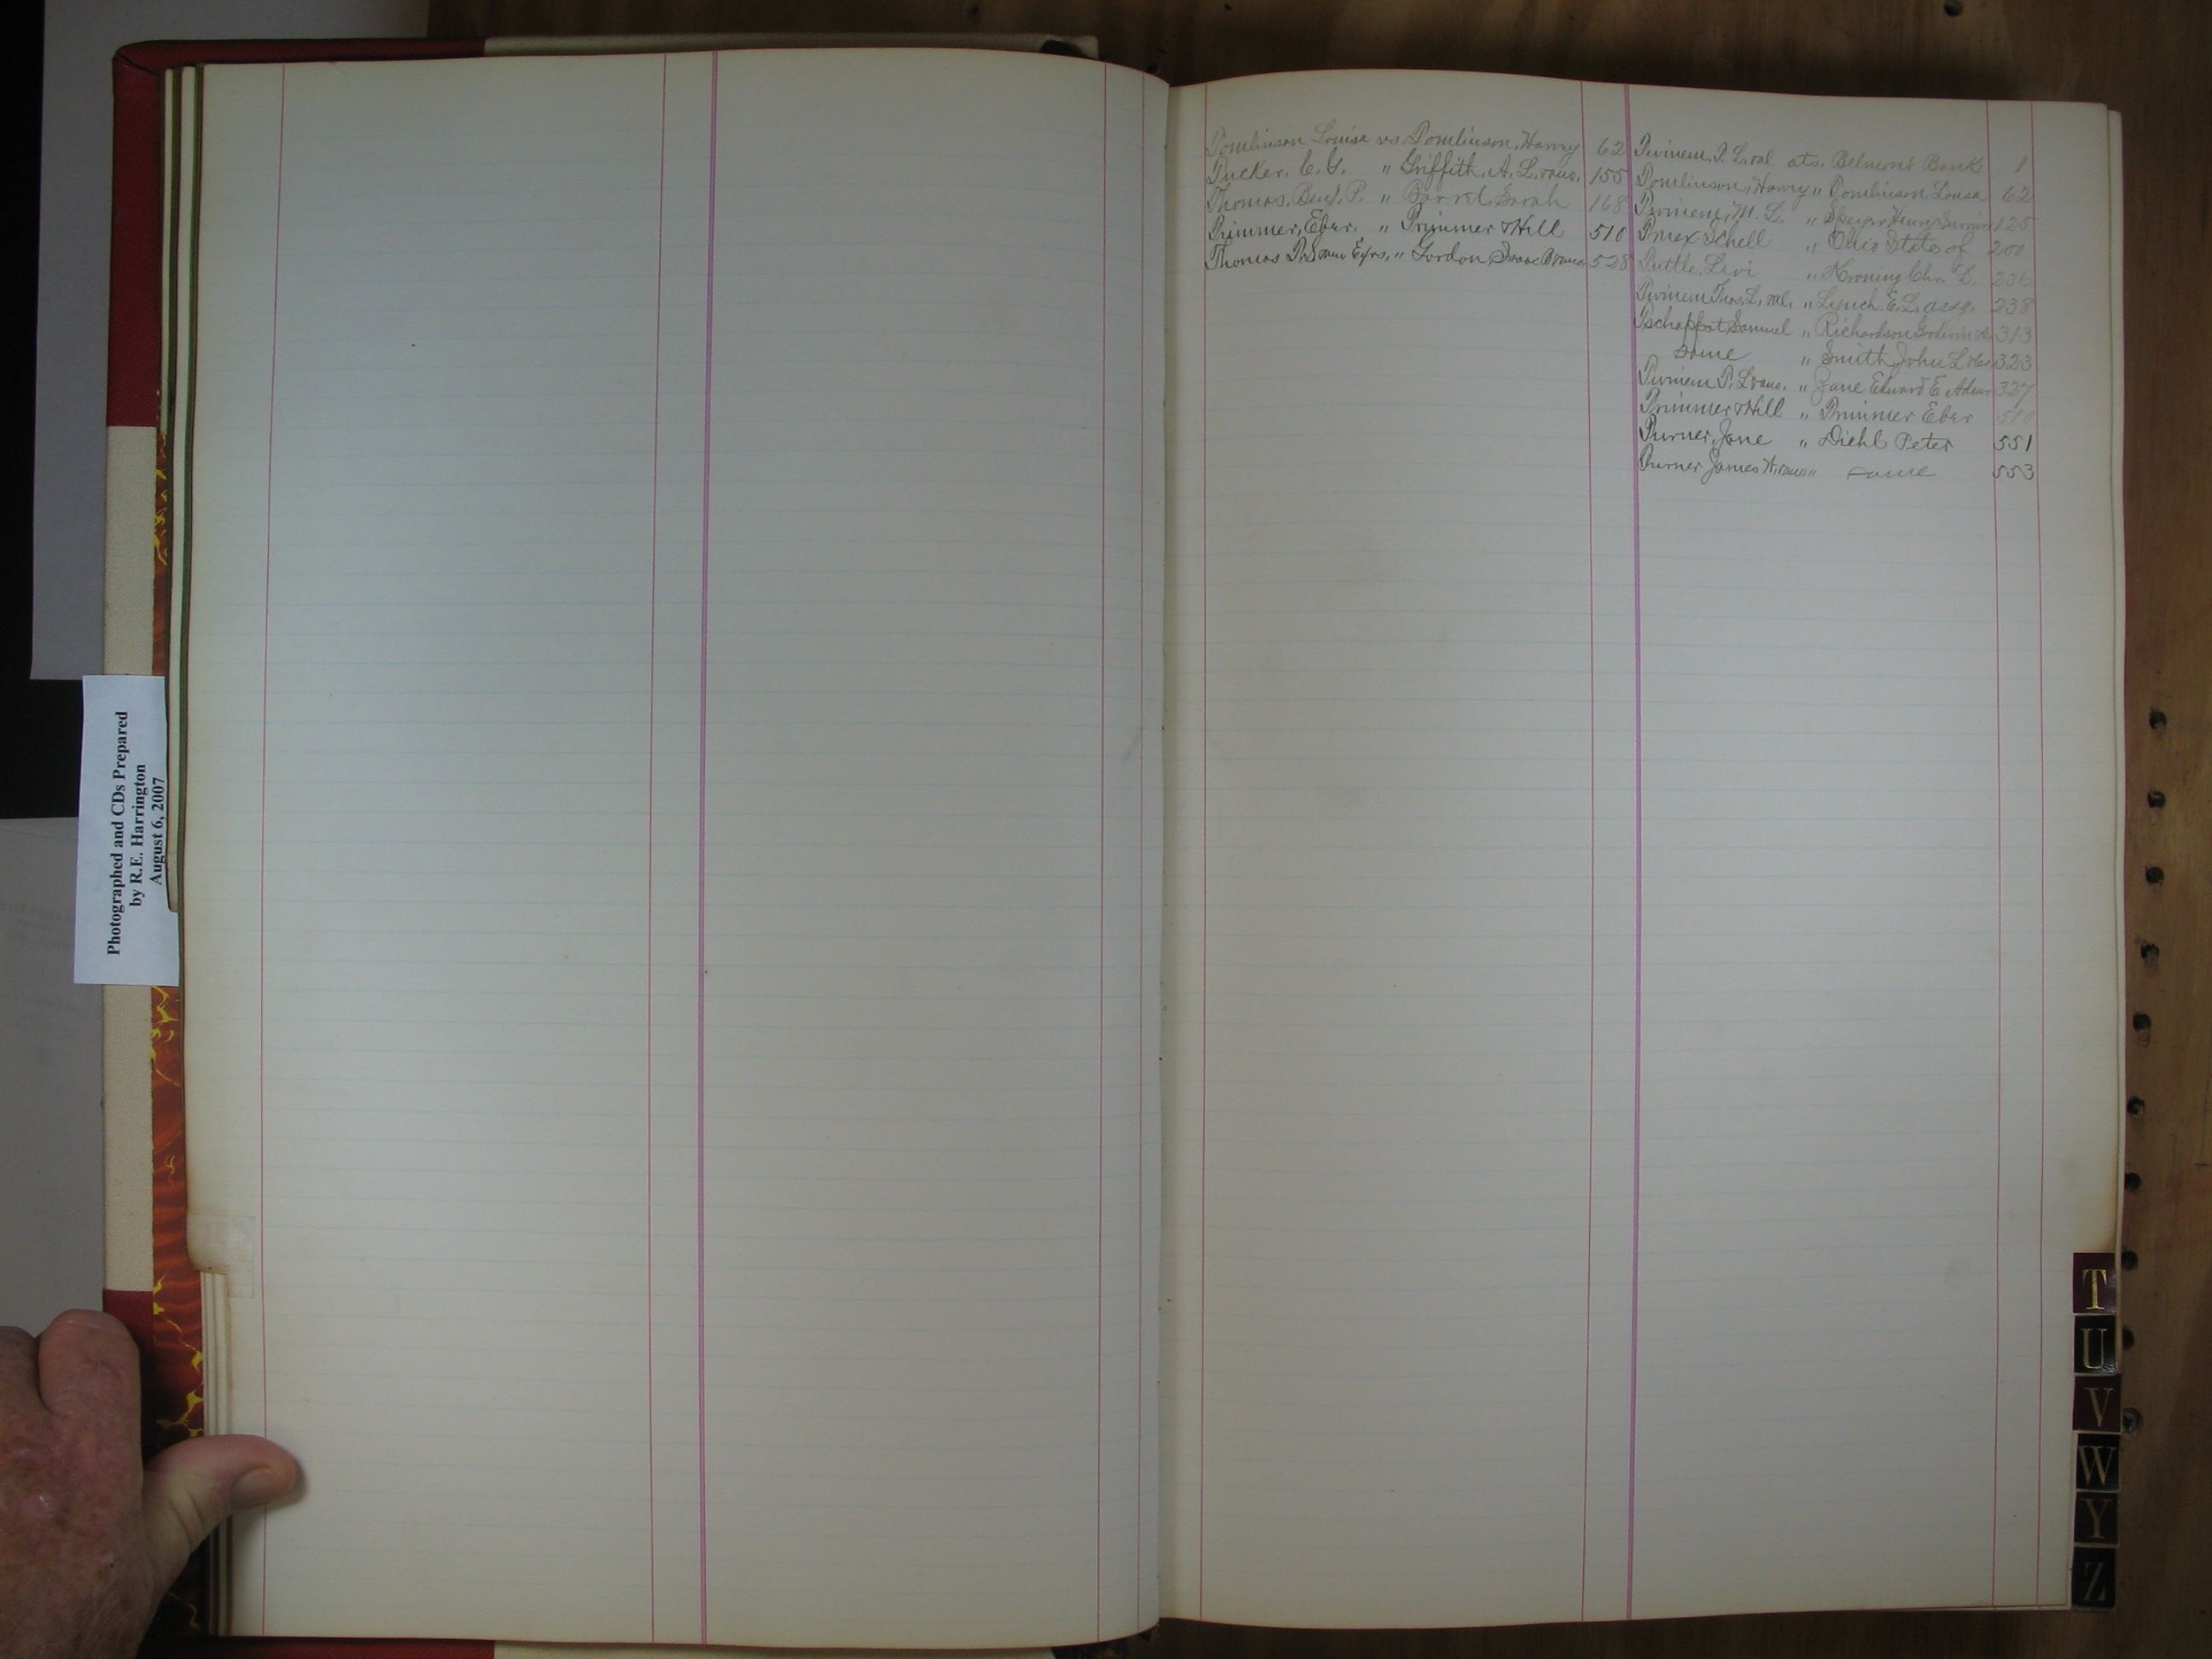 Photographed and CDs Prepared
by R.E. Harrington
August 6, 2007
Tomlinson Louisa vs Tomlinson, Harvey 62
Tucker, C. G. " Griffith, A. L. 155
Thomas, Benj. P. " Sarah 168
Trimmer, Eber. " Trimmer & Hill 510
Thomas Exrs. " Gordon Isaac 528
Twinem, T. L. ats. Belmont Bank 1
Tomlinson, Harvey " Tomlinson Louisa 62
Twinem, M. L. " Speyer Henry 125
Schell " Ohio State of 200
Tuttle, Levi " Kroning Chr. 236
Twinem Thos. L. " Lynch E. L. 238
Tschappat Samuel " Richardson 313
same " Smith, John L 323
Twinem T. L " Zane Edward E. 327
Trimmer & Hill " Trimmer Eber 510
Turner, Jane " Diehl Peter 551
Turner James " same 553
T
U
V
W
Y
Z